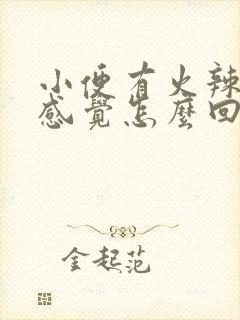 小便有火辣
感覺怎麼回
金起范